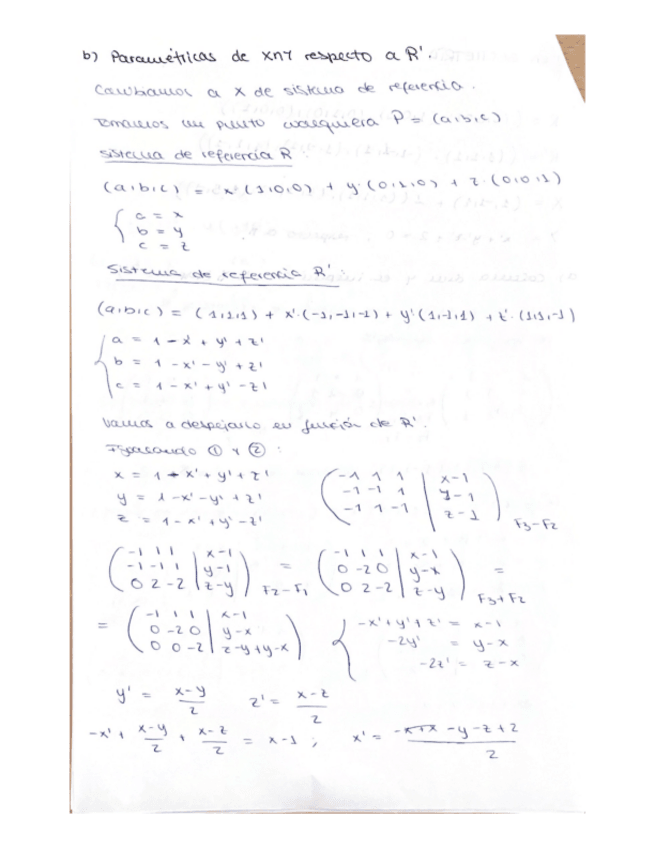 b) Paramétricas de X∩Y respecto a R'.
Cambiamos a X de sistema de referencia.
Tomamos un punto cualquiera P = (a,b,c)
sistema de referencia R:
(a,b,c) = x (1,0,0) + y (0,1,0) + z (0,0,1)
a = x
b = y
c = z
Sistema de referencia R':
(a,b,c) = (1,1,1) + x' (-1,-1,-1) + y' (1,-1,1) + z' (1,1,-1)
a = 1 - x' + y' + z'
b = 1 - x' - y' + z'
c = 1 - x' + y' - z'
Vamos a despejarlo en función de R'.
Igualando ① y ②:
x = 1 - x' + y' + z'
y = 1 - x' - y' + z'
z = 1 - x' + y' - z'
-1 1 1 | x-1
-1 -1 1 | y-1
-1 1 -1 | z-1
F3-F2
-1 1 1 | x-1
-1 -1 1 | y-1
0 2 -2 | z-y
F2-F1 =
-1 1 1 | x-1
0 -2 0 | y-x
0 2 -2 | z-y
F3+F2 =
= -1 1 1 | x-1
0 -2 0 | y-x
0 0 -2 | z-y+y-x
-x'+y'+z' = x-1
-2y' = y-x
-2z' = z-x
y' = x-y / 2 z' = x-z / 2
-x' + x-y / 2 + x-z / 2 = x-1 ; x' = -y-z+2 / 2